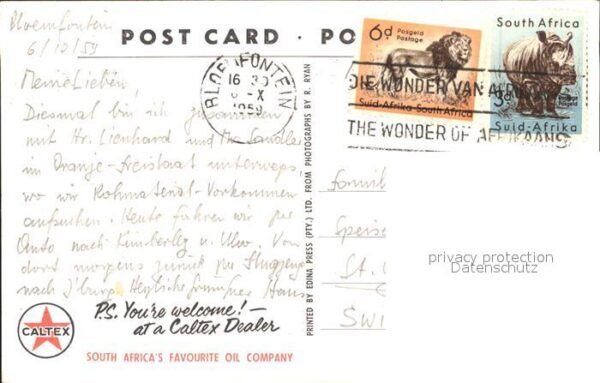 Bloemfontein
6/10/59
POST CARD · PO
BLOEMFONTEIN
16 30
6-X
1959
6d
Posgeld
Postage
Suid-Afrika-South Africa
South Africa
3d
Suid-Afrika
DIE WONDER VAN AFRIKAANS
THE WONDER OF AFRIKAANS
Meine Lieben,
Diesmal bin ich zusammen
mit Hr. Lienhard und
im Oranje-Freistaat unterwegs,
wo wir Rohmaterial-Vorkommen
aufsuchen. Heute fahren wir per
Auto nach Kimberley u. Von
dort morgens zurück per Flugzeug
nach J'burg. Herzliche Hans
Famil
Speise
St. G
SWI
privacy protection
Datenschutz
PRINTED BY EDINA PRESS (PTY.) LTD. FROM PHOTOGRAPHS BY R. RYAN
CALTEX
P.S. You're welcome! —
at a Caltex Dealer
SOUTH AFRICA'S FAVOURITE OIL COMPANY